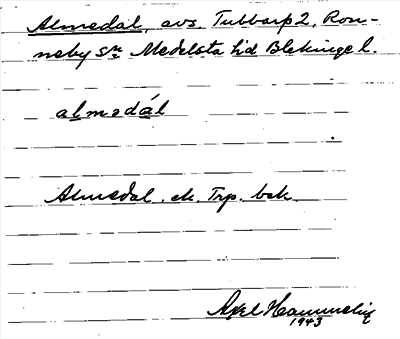 Almedal, avs. Tubbarp 2, Ron-
neby sn Medelsta hd Blekinge l.
almedál
Almedal. ek. Trp. bsk.
Axel Hammelin
1943